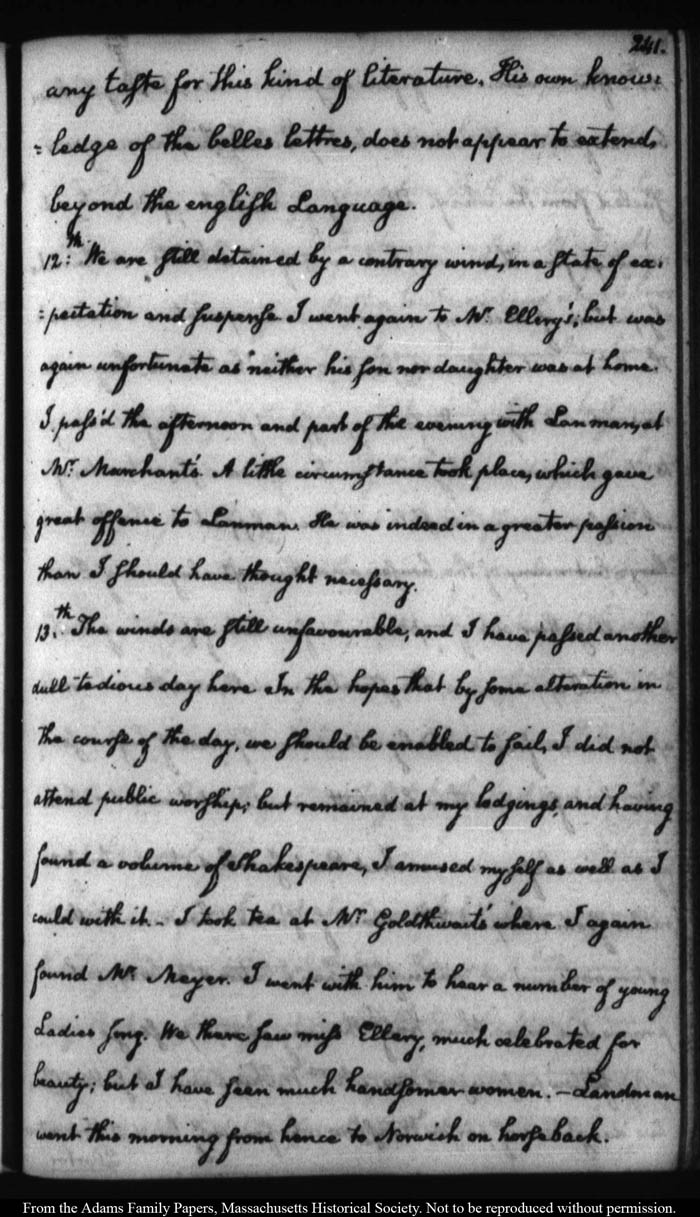 241.
any taste for this kind of literature. His own know=
=ledge of the belles lettres, does not appear to extend,
beyond the english Language.
12.th We are still detained by a contrary wind, in a state of ex=
=pectation and suspense I went again to Mr. Ellery's; but was
again unfortunate as neither his son nor daughter was at home.
I pass'd the afternoon and part of the evening with Lanman, at
Mr. Marchant's. A little circumstance took place, which gave
great offence to Lanman. He was indeed in a greater passion
than I should have thought necessary.
13.th The winds are still unfavourable, and I have passed another
dull tedious day here In the hopes that by some alteration in
the course of the day, we should be enabled to sail, I did not
attend public worship; but remained at my lodgings, and having
found a volume of Shakespeare, I amused myself as well as I
could with it. - I took tea at Mr. Goldthwait's where I again
found Mr. Meyer. I went with him to hear a number of young
Ladies sing. We there saw miss Ellery, much celebrated for
beauty; but I have seen much handsomer women. - Landman
went this morning from hence to Norwich on horseback.
From the Adams Family Papers, Massachusetts Historical Society. Not to be reproduced without permission.